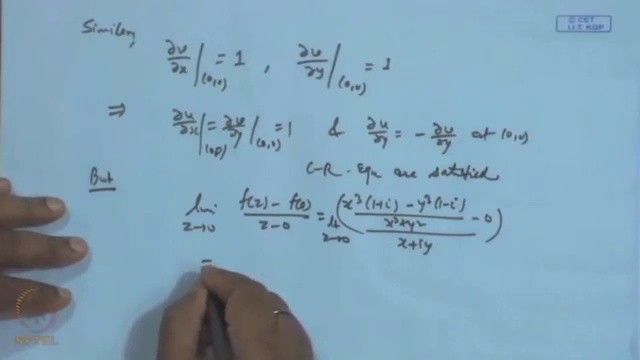 © CET
I.I.T. KGP
Similarly
∂v/∂x|(0,0) = 1 , ∂v/∂y|(0,0) = 1
⇒ ∂u/∂x|(0,0) = ∂v/∂y|(0,0) = 1 & ∂u/∂y = - ∂v/∂y at (0,0)
C-R- Equ are satisfied
But
lim z→0 f(z) - f(0) / z - 0 = lt z→0 ( x³(1+i) - y³(1-i) / x²+y² - 0 / x+iy )
=
NPTEL